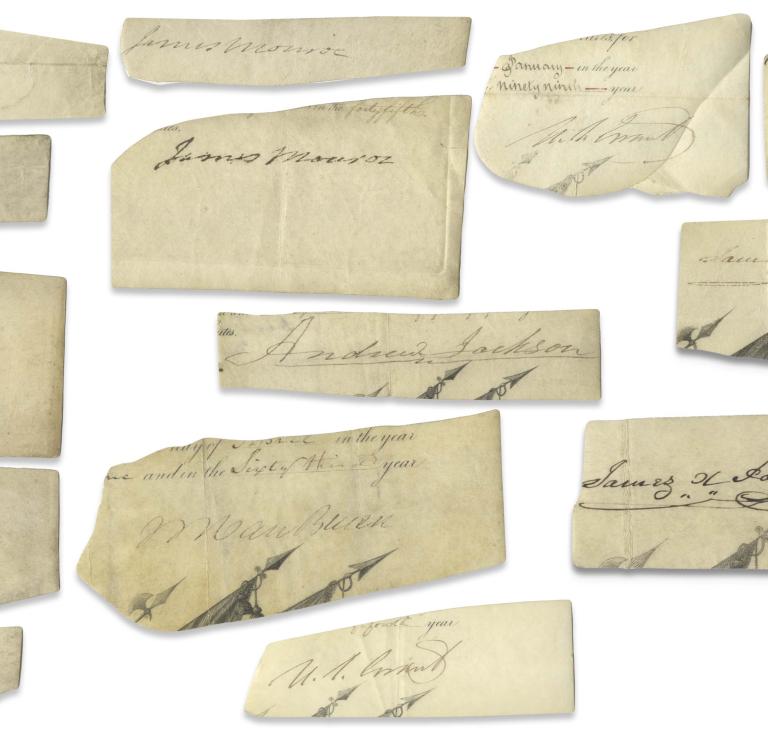 James Monroe
in the fortyfifth
ates.
James Monroe
January in the year
ninety ninth year
U. S. Grant
ates.
Andrew Jackson
Jam
day of in the year
and in the Sixty Third year
M Van Buren
James K Po
fourth year
U. S. Grant